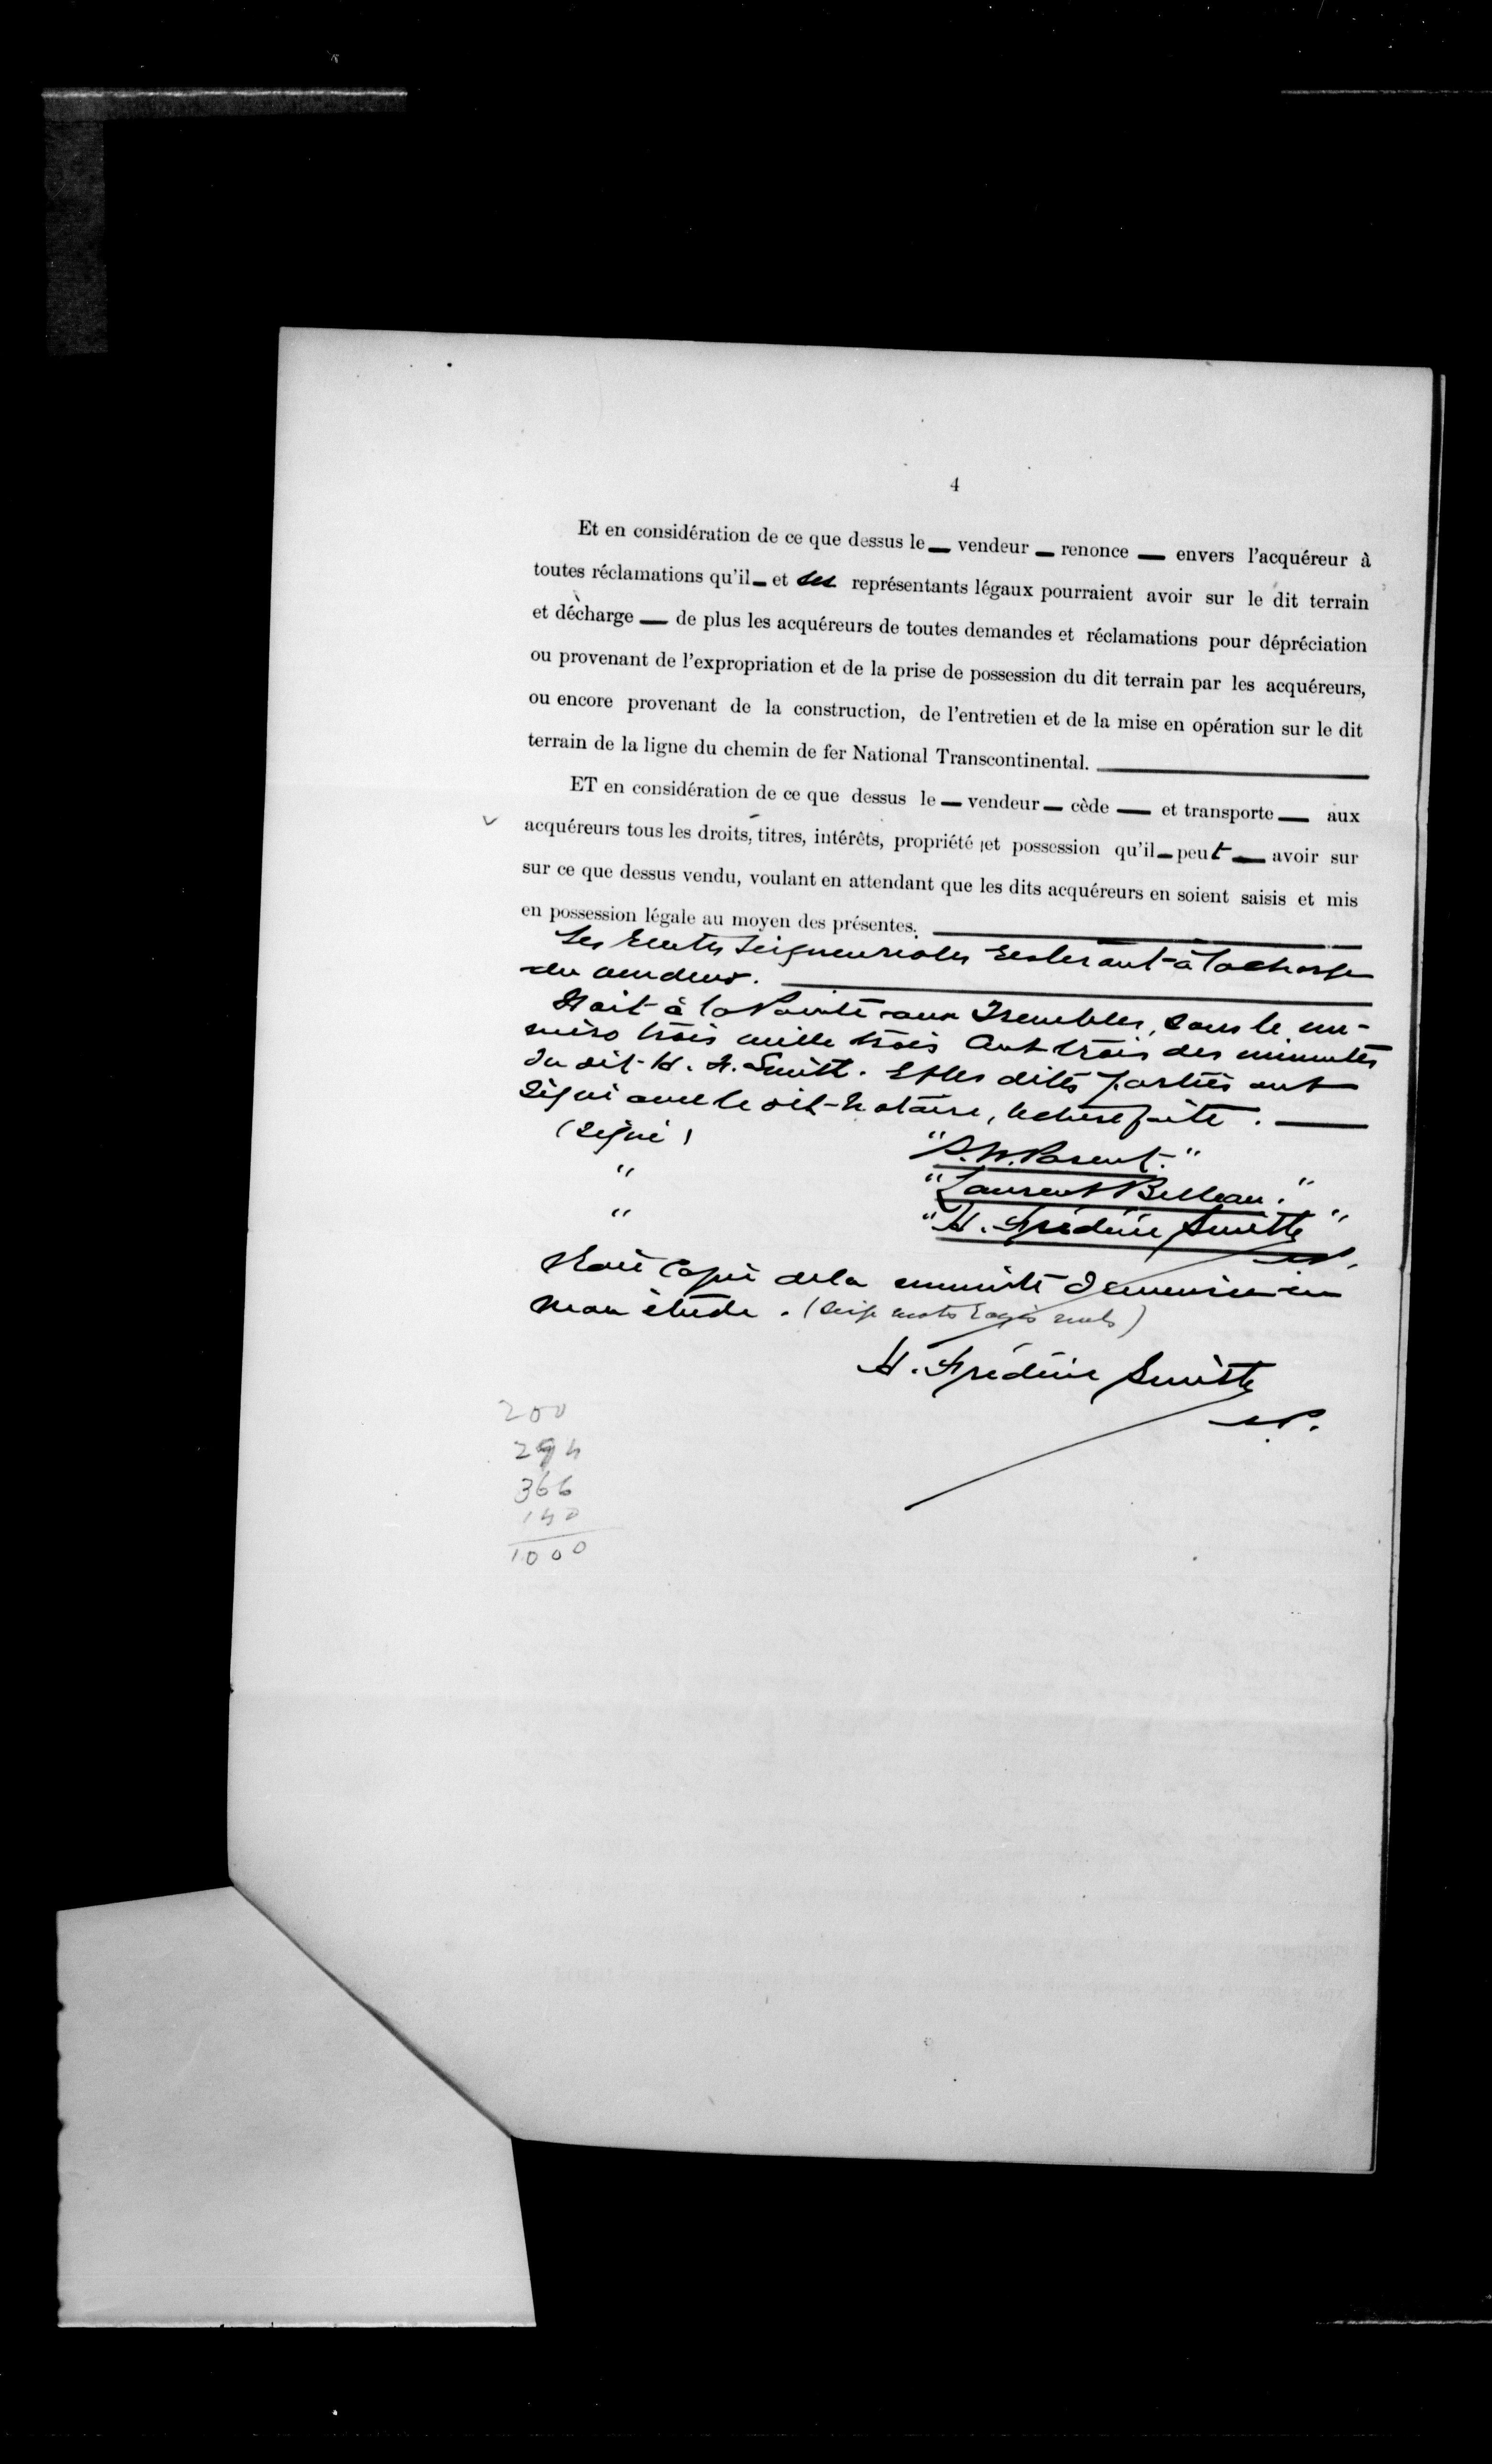 4
Et en considération de ce que dessus le — vendeur — renonce — envers l'acquéreur à
toutes réclamations qu'il — et ses représentants légaux pourraient avoir sur le dit terrain
et dècharge — de plus les acquéreurs de toutes demandes et réclamations pour dépréciation
ou provenant de l'expropriation et de la prise de possession du dit terrain par les acquéreurs,
ou encore provenant de la construction, de l'entretien et de la mise en opération sur le dit
terrain de la ligne du chemin de fer National Transcontinental. —
ET en considération de ce que dessus le — vendeur — cède — et transporte — aux
acquéreurs tous les droits, titres, intérêts, propriété et possession qu'il — peut — avoir sur
sur ce que dessus vendu, voulant en attendant que les dits acquéreurs en soient saisis et mis
en possession légale au moyen des présentes. —
Les rentes seigneuriales resteront à la charge
du vendeur. —
Fait à la Pointe aux Trembles, sous le nu-
méro trois mille trois cent trois des minutes
du dit H. F. Smith. Et les dites parties ont
signé avec le dit notaire, lecture faite. —
(signé) "S. N. Parent."
" "Laurent Belleau."
" "H. Frédéric Smith" N.P.
Vraie copie de la minute demeurée en
mon étude. (mots rayés nuls)
H. Frédéric Smith
N.P.
200
294
366
140
1000